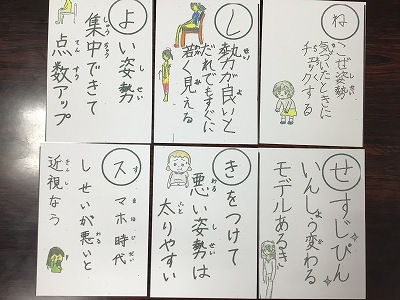 ねこぜ姿勢
気づいたときに
チェックする
し勢が良いと
だれでもすぐに
若く見える
よい姿勢
集中できて
点数アップ
せすじぴん
いんしょう変わる
モデルあるき
きをつけて
悪い姿勢は
太りやすい
スマホ時代
しせいが悪いと
近視なう